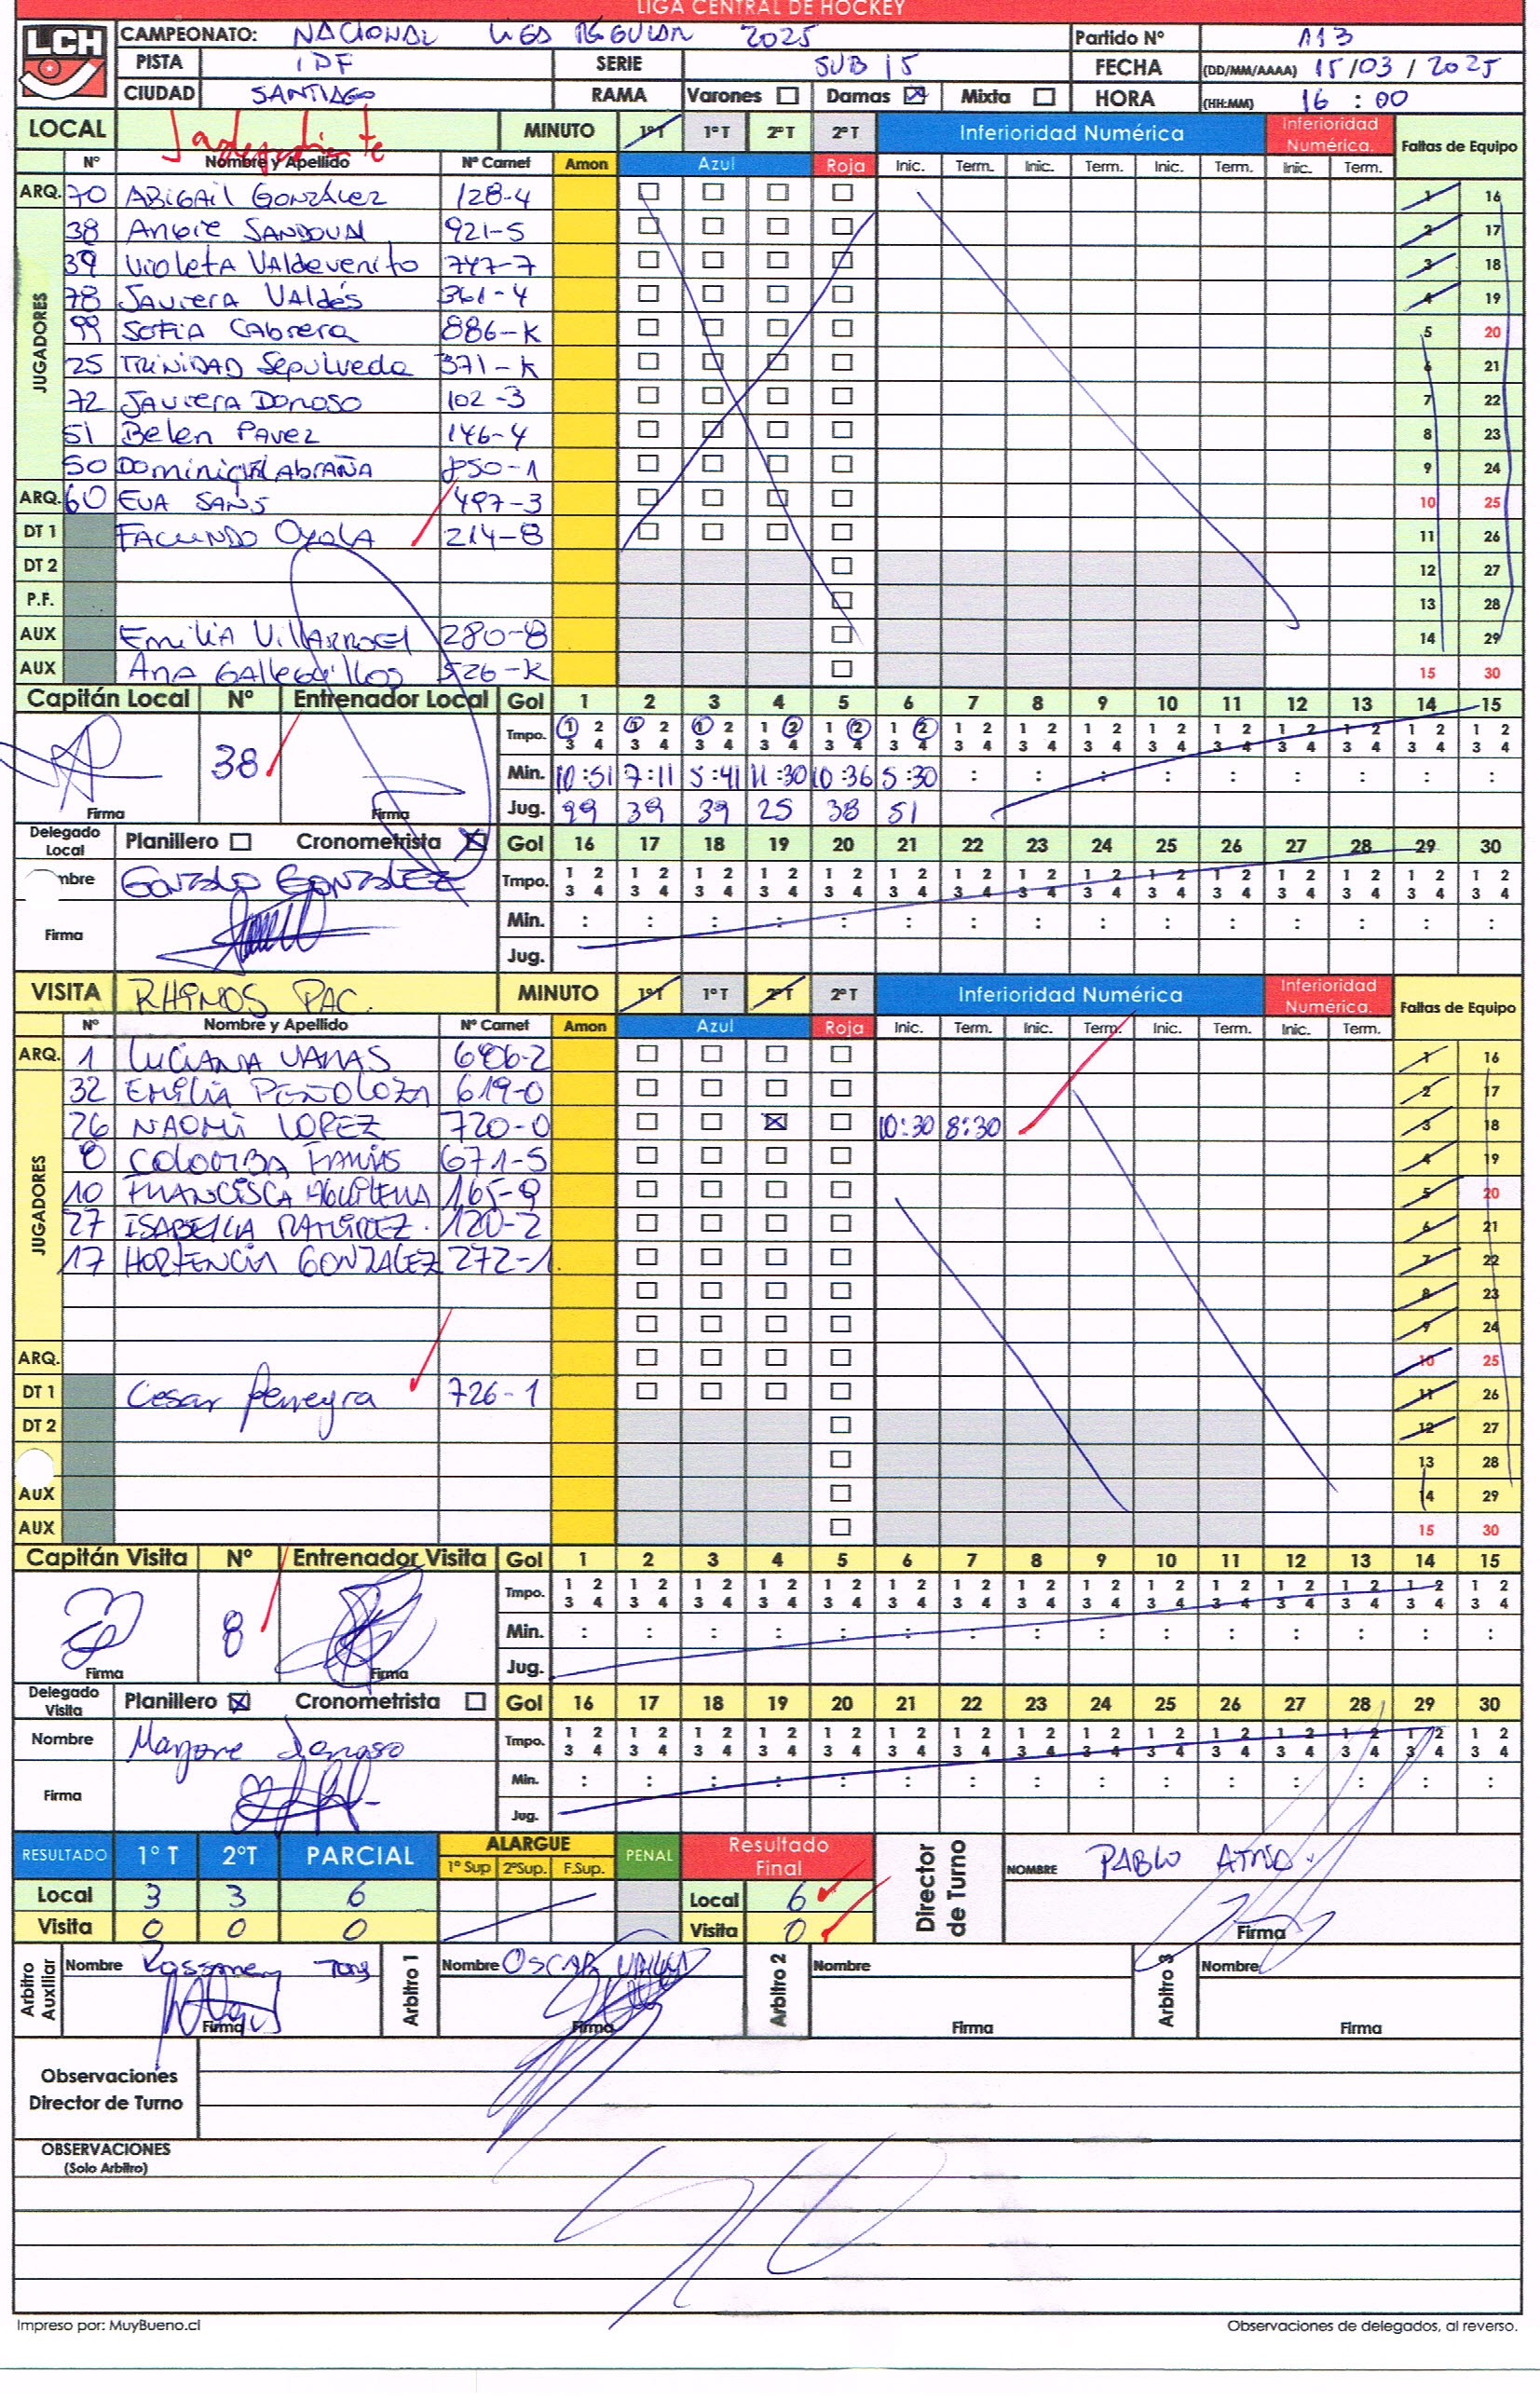 LIGA CENTRAL DE HOCKEY
LCH
CAMPEONATO: NACIONAL LIGA REGULAR 2025 Partido Nº 113
PISTA IDF SERIE SUB 15 FECHA (DD/MM/AAAA) 15/03/2025
CIUDAD SANTIAGO RAMA Varones Damas Mixta HORA (HH:MM) 16:00
LOCAL Independiente MINUTO 1ºT 1ºT 2ºT 2ºT Inferioridad Numérica Inferioridad Numérica. Faltas de Equipo
Nº Nombre y Apellido Nº Carnet Amon Azul Roja Inic. Term. Inic. Term. Inic. Term. Inic. Term.
ARQ. 70 ABIGAIL GONZÁLEZ 128-4 1 16
JUGADORES
38 ANGIE SANDOVAL 921-5 2 17
39 VIOLETA VALDEVENITO 747-7 3 18
78 JAVIERA VALDÉS 361-4 4 19
99 SOFIA CABRERA 886-K 5 20
25 TRINIDAD SEPULVEDA 371-K 6 21
72 JAVIERA DONOSO 102-3 7 22
51 BELEN PAVEZ 146-4 8 23
50 DOMINIQUE LABRAÑA 850-1 9 24
ARQ. 60 EVA SANS 497-3 10 25
DT 1 FACUNDO OYOLA 214-8 11 26
DT 2 12 27
P.F. 13 28
AUX EMILIA VILLARROEL 280-8 14 29
AUX ANA GALLEGUILLOS 526-K 15 30
Capitán Local Nº Entrenador Local Gol 1 2 3 4 5 6 7 8 9 10 11 12 13 14 15
Tmpo. 1 2 3 4 1 2 3 4 1 2 3 4 1 2 3 4 1 2 3 4 1 2 3 4 1 2 3 4 1 2 3 4 1 2 3 4 1 2 3 4 1 2 3 4 1 2 3 4 1 2 3 4 1 2 3 4 1 2 3 4
38 Min. 10:51 7:11 5:41 11:30 10:36 5:30 : : : : : : : : :
Firma Firma Jug. 99 39 39 25 38 51
Delegado Local Planillero Cronometrista Gol 16 17 18 19 20 21 22 23 24 25 26 27 28 29 30
mbre GONZALO GONZALEZ Tmpo. 1 2 3 4 1 2 3 4 1 2 3 4 1 2 3 4 1 2 3 4 1 2 3 4 1 2 3 4 1 2 3 4 1 2 3 4 1 2 3 4 1 2 3 4 1 2 3 4 1 2 3 4 1 2 3 4 1 2 3 4
Firma Min. : : : : : : : : : : : : : : :
Jug.
VISITA RHINOS PAC. MINUTO 1ºT 1ºT 2ºT 2ºT Inferioridad Numérica Inferioridad Numérica. Faltas de Equipo
Nº Nombre y Apellido Nº Carnet Amon Azul Roja Inic. Term. Inic. Term. Inic. Term. Inic. Term.
ARQ. 1 LUCIANA 606-2 1 16
JUGADORES
32 EMILIA PEÑOLOZA 619-0 2 17
26 NAOMI LOPEZ 720-0 10:30 8:30 3 18
8 COLOMBA FARIAS 671-5 4 19
10 FRANCISCA 165-9 5 20
27 ISABELLA RAMIREZ. 120-2 6 21
17 HORTENCIA GONZALEZ 272-1. 7 22
8 23
9 24
ARQ. 10 25
DT 1 Cesar Perreyra 726-1 11 26
DT 2 12 27
13 28
AUX 14 29
AUX 15 30
Capitán Visita Nº Entrenador Visita Gol 1 2 3 4 5 6 7 8 9 10 11 12 13 14 15
Tmpo. 1 2 3 4 1 2 3 4 1 2 3 4 1 2 3 4 1 2 3 4 1 2 3 4 1 2 3 4 1 2 3 4 1 2 3 4 1 2 3 4 1 2 3 4 1 2 3 4 1 2 3 4 1 2 3 4 1 2 3 4
8 Min. : : : : : : : : : : : : : : :
Firma Firma Jug.
Delegado Visita Planillero Cronometrista Gol 16 17 18 19 20 21 22 23 24 25 26 27 28 29 30
Nombre Marjorie Donoso Tmpo. 1 2 3 4 1 2 3 4 1 2 3 4 1 2 3 4 1 2 3 4 1 2 3 4 1 2 3 4 1 2 3 4 1 2 3 4 1 2 3 4 1 2 3 4 1 2 3 4 1 2 3 4 1 2 3 4 1 2 3 4
Firma Min. : : : : : : : : : : : : : : :
Jug.
RESULTADO 1º T 2ºT PARCIAL ALARGUE 1º Sup 2ºSup. F.Sup. PENAL Resultado Final Director de Turno NOMBRE PABLO
Local 3 3 6 Local 6
Visita 0 0 0 Visita 0 Firma
Arbitro Auxiliar Nombre Arbitro 1 Nombre OSCAR Arbitro 2 Nombre Arbitro 3 Nombre
Firma Firma Firma Firma
Observaciones
Director de Turno
OBSERVACIONES
(Solo Arbitro)
Impreso por: MuyBueno.cl Observaciones de delegados, al reverso.